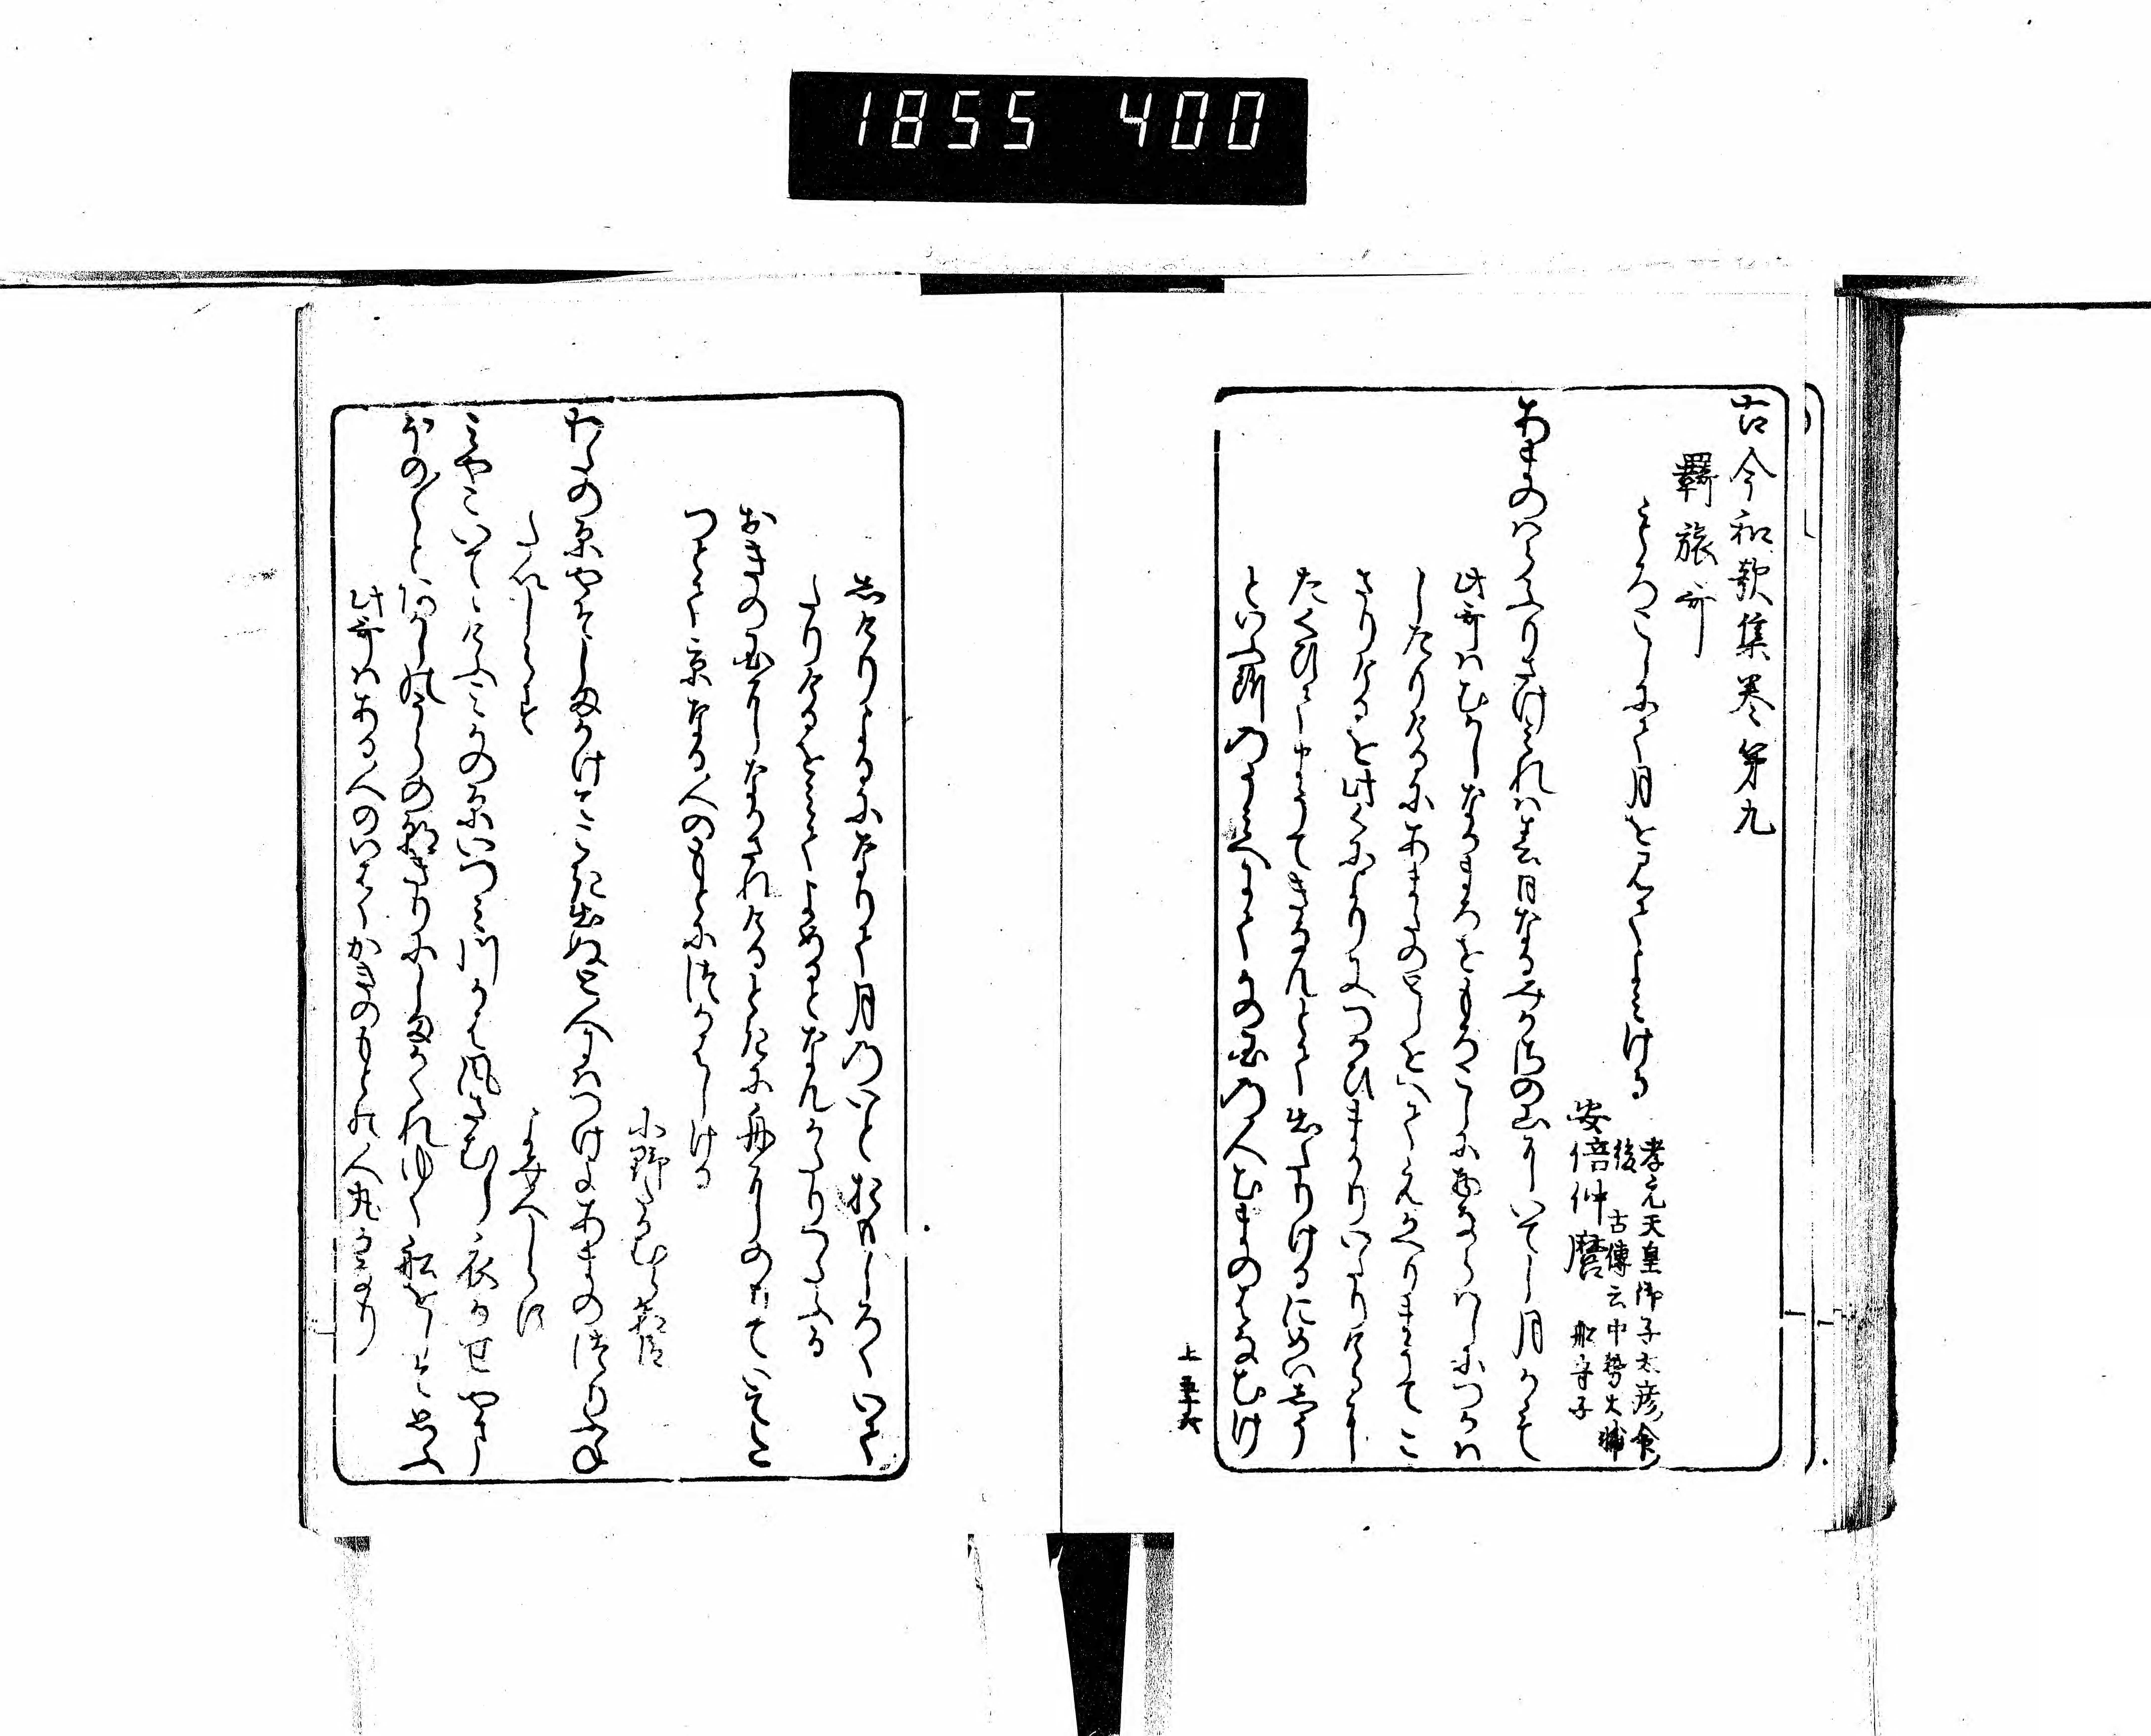 1855 400
古今和歌集巻第九
羇旅哥
もろこしにて月を見てよみける
孝元天皇御子太彦命
後
古傳云中務大輔
安倍仲麿
船守子
あまのはらふりさけみれは春日なるみかさの山にいてし月かも
此哥はむかしなかまろをもろこしに物ならはしにつかは
したりけるにあまたのとしをへてえかへりまうてこ
さりけるを此くによりまたつかひまかりいたりけるに
たくひてまうてきなんとて出たりけるにめいしう
といふ所のうみへにてかの国の人むまのはなむけ
上五十六
しけりよるになりて月のいとおもしろくいて
たりけるをみてよめるとなんかたりつたふる
おきの国になかされける時に舟にのりていてた
つとて京なる人のもとにつかはしける
小野たかむら朝臣
わたの原やそしまかけてこき出ぬと人にはつけよあまのつりふね
たいしらす
よみ人しらす
みやこいてゝけふみかの原いつみ川かは風さむし衣かせやま
ほの／＼とあかしのうらの朝きりにしまかくれゆく船をしそ思ふ
此哥はある人のいはくかきのもとの人丸かうたなり